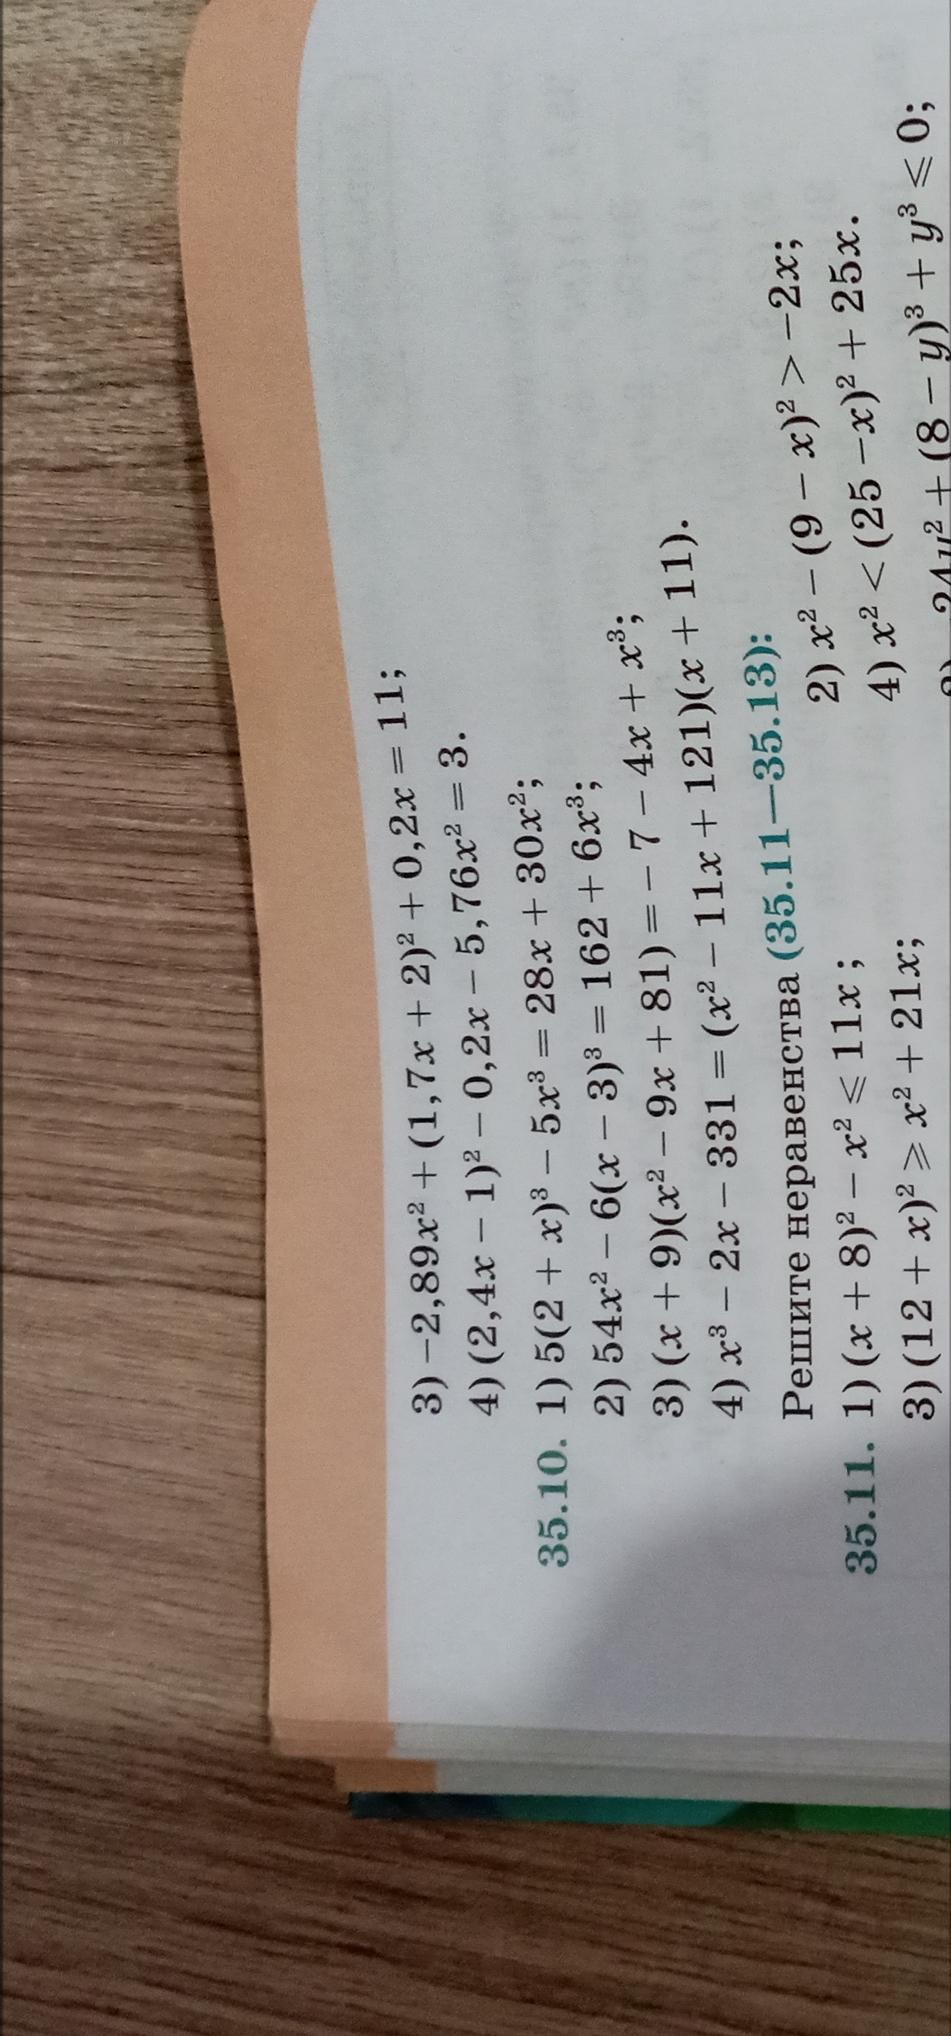 3) −2,89x² + (1,7x + 2)² + 0,2x = 11;
4) (2,4x − 1)² − 0,2x − 5,76x² = 3.
35.10. 1) 5(2 + x)³ − 5x³ = 28x + 30x²;
2) 54x² − 6(x − 3)³ = 162 + 6x³;
3) (x + 9)(x² − 9x + 81) = − 7 − 4x + x³;
4) x³ − 2x − 331 = (x² − 11x + 121)(x + 11).
Решите неравенства (35.11—35.13):
35.11. 1) (x + 8)² − x² ⩽ 11x; 2) x² − (9 − x)² > −2x;
3) (12 + x)² ⩾ x² + 21x; 4) x² < (25 −x)² + 25x.
24y² + (8 − y)³ + y³ ⩽ 0;